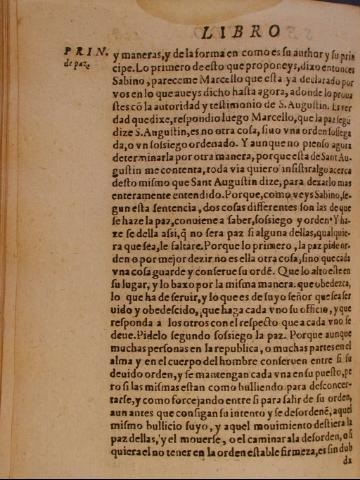 LIBRO
PRIN.
de paz.
y maneras, y de la forma en como es su author y su prin
cipe. Lo primero de esto que proponeys, dixo entonces
Sabino, pareceme Marcello que esta ya declarado por
vos en lo que aueys dicho hasta agora, adonde lo proua
stes cõ la autoridad y testimonio de S. Augustin. Es ver
dad que dixe, respondio luego Marcello, que la paz segũ
dize S. Augustin, es no otra cosa, sino vna orden sossega
da, o vn sossiego ordenado. Y aunque no pienso agora
determinarla por otra manera, porque esta de Sant Au-
gustin me contenta, toda via quiero insistir algo acerca
desto mismo que Sant Augustin dize, para dexarlo mas
enteramente entendido. Porque, como veys Sabino, se-
gun esta sentencia, dos cosas differentes son las de que
se haze la paz, conuiene a saber, sossiego y orden. Y ha-
ze se della assi, q̃ no sera paz si alguna dellas, qualquie-
ra que sea, le faltare. Porque lo primero, la paz pide or-
den o por mejor dezir no es ella otra cosa, sino que cada
vna cosa guarde y conserue su ordẽ. Que lo alto este en
su lugar, y lo baxo por la misma manera. que obedezca,
lo que ha de seruir, y lo que es de suyo señor que sea ser
uido y obedescido, que haga cada vno su officio, y que
responda a los otros con el respecto que a cada vno se
deue. Pidelo segundo sossiego la paz. Porque aunque
muchas personas en la republica, o muchas partes en el
alma y en el cuerpo del hombre conseruen entre si su
deuido orden, y se mantengan cada vna en su puesto, pe
ro si las mismas estan como bulliendo para desconcer-
tarse, y como forcejando entre si para salir de su orden,
aun antes que consigan su intento y se desordenẽ, aquel
mismo bullicio suyo, y aquel mouimiento destierra la
paz dellas, y el mouerse, o el caminar a la desorden, o si
quiera el no tener en la orden estable firmeza, es sin dub
da